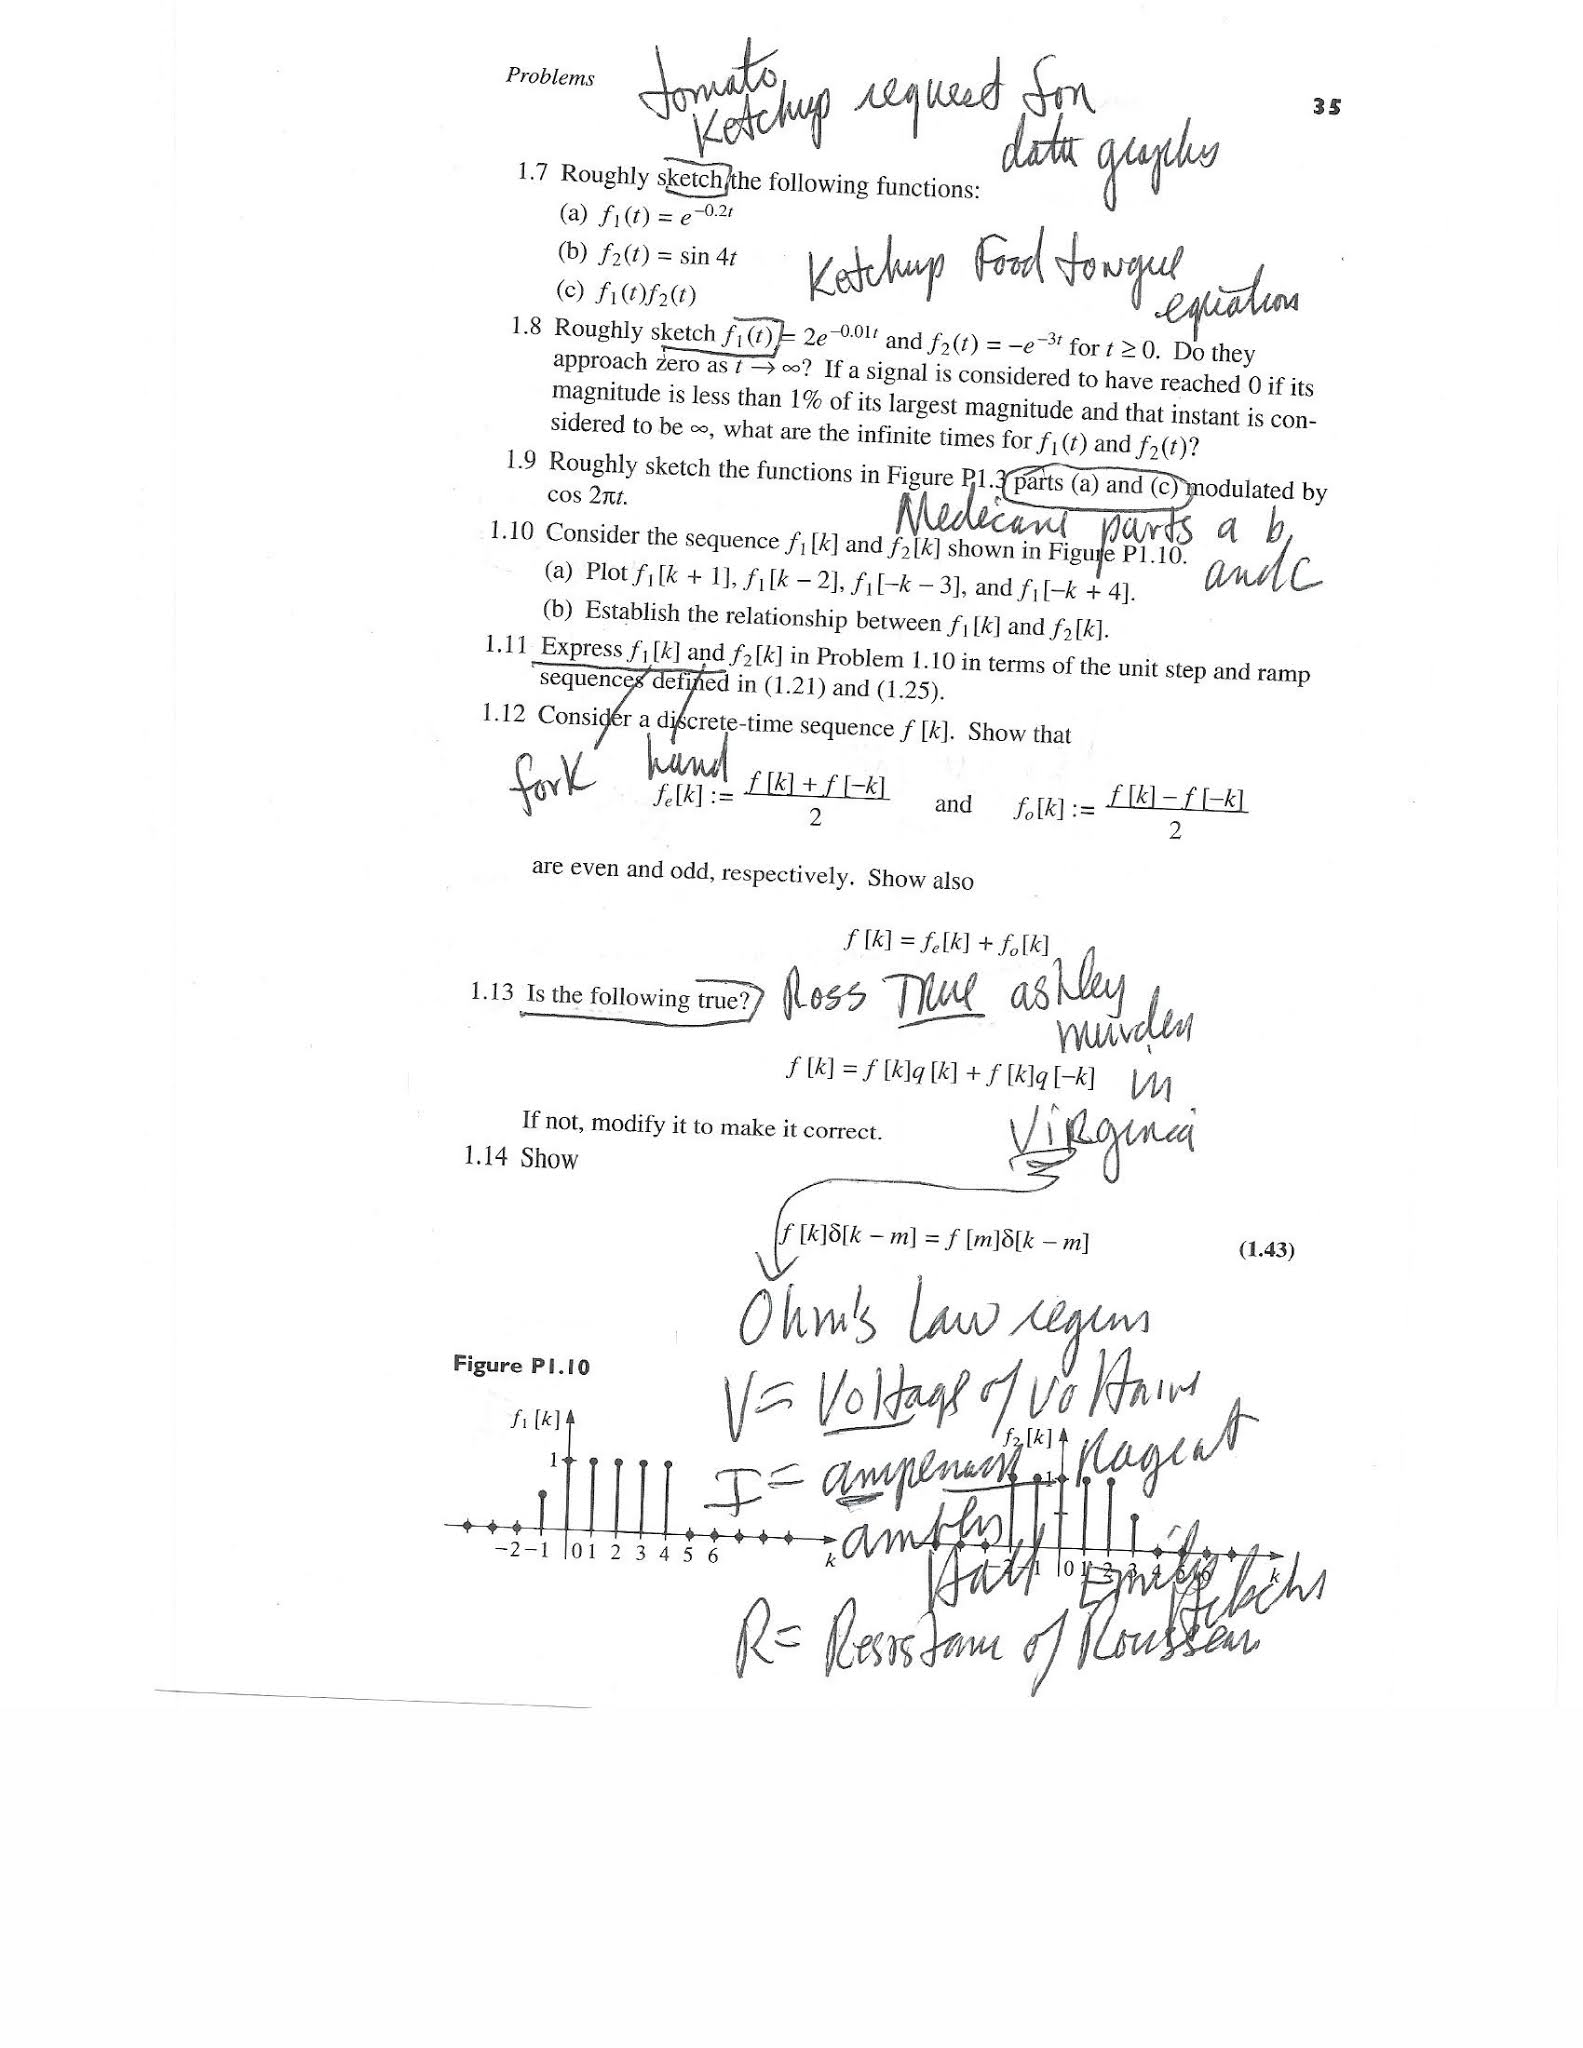 Problems
tomato
Ketchup request for
data graphs
35
1.7 Roughly sketch the following functions:
(a) f₁(t) = e^−0.2t
(b) f₂(t) = sin 4t
(c) f₁(t)f₂(t)
Ketchup Food tongue
equation
1.8 Roughly sketch f₁(t) = 2e^−0.01t and f₂(t) = −e^−3t for t ≥ 0. Do they
approach zero as t → ∞? If a signal is considered to have reached 0 if its
magnitude is less than 1% of its largest magnitude and that instant is con-
sidered to be ∞, what are the infinite times for f₁(t) and f₂(t)?
1.9 Roughly sketch the functions in Figure P1.3 parts (a) and (c) modulated by
cos 2πt.
Medicare parts a b,
and C
1.10 Consider the sequence f₁[k] and f₂[k] shown in Figure P1.10.
(a) Plot f₁[k + 1], f₁[k − 2], f₁[−k − 3], and f₁[−k + 4].
(b) Establish the relationship between f₁[k] and f₂[k].
1.11 Express f₁[k] and f₂[k] in Problem 1.10 in terms of the unit step and ramp
sequences defined in (1.21) and (1.25).
1.12 Consider a discrete-time sequence f [k]. Show that
fork hand
fₑ[k] := f [k] + f [−k] / 2 and fₒ[k] := f [k] − f [−k] / 2
are even and odd, respectively. Show also
f [k] = fₑ[k] + fₒ[k]
1.13 Is the following true?
Ross True ashley
murder
f [k] = f [k]q [k] + f [k]q [−k]
in
Virginia
If not, modify it to make it correct.
1.14 Show
f [k]δ[k − m] = f [m]δ[k − m] (1.43)
Ohm's Law
V = Voltage of Voltaire
Figure P1.10
f₁ [k]
1
−2 −1 0 1 2 3 4 5 6
k
f₂ [k]
1
0 1 2 3
k
I =
Hall Emily
R = Resistance of Rousseau